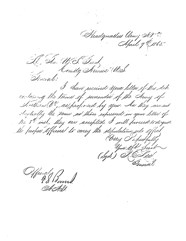 Headquarters Army
April 9th 1865
Lt. Gen. U.S. Grant
General:
I have received your letter of this date
containing the terms of surrender of the Army of
Northern Va. as proposed by you. As they are
substantially the same as those expressed in your letter of
the 8th inst., they are accepted. I will proceed to
officers to carry the stipulations into effect
Very Respectfully
Your Obt. Servt.
R. E. Lee
General
Official